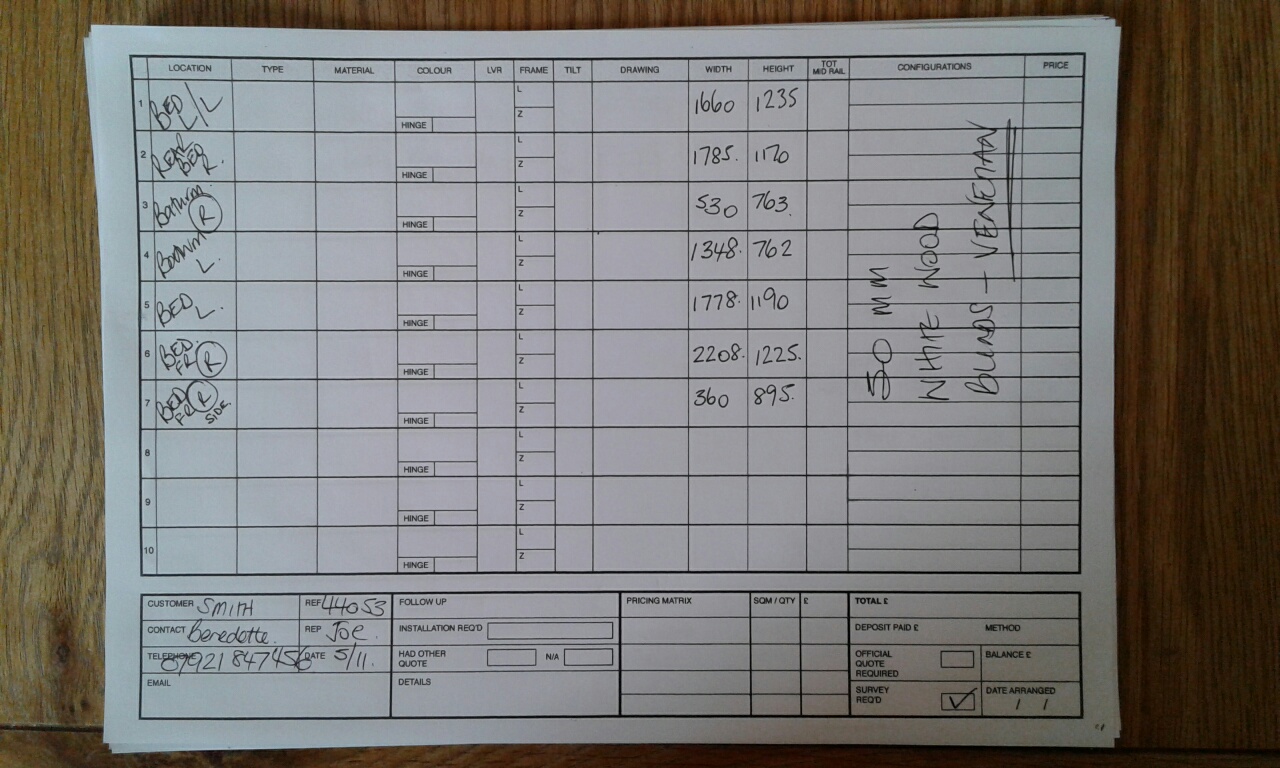 LOCATION TYPE MATERIAL COLOUR LVR FRAME TILT DRAWING WIDTH HEIGHT TOT MID RAIL CONFIGURATIONS PRICE
1 BED L/L HINGE L Z 1660 1235
2 REAR BED R. HINGE L Z 1785. 1170
3 Bathrm R HINGE L Z 530 763.
4 Bathrm L. HINGE L Z 1348. 762
5 BED L. HINGE L Z 1778. 1190
6 BED FR R HINGE L Z 2208. 1225.
7 BED FR R SIDE. HINGE L Z 360 895.
8 HINGE L Z
9 HINGE L Z
10 HINGE L Z
50 MM
WHITE WOOD
BLINDS - VENETIAN
CUSTOMER SMITH REF 44053
CONTACT Benedette. REP JOE.
TELEPHONE 07921 847456 DATE 5/11.
EMAIL
FOLLOW UP
INSTALLATION REQ'D
HAD OTHER QUOTE N/A
DETAILS
PRICING MATRIX SQM / QTY £
TOTAL £
DEPOSIT PAID £ METHOD
OFFICIAL QUOTE REQUIRED BALANCE £
SURVEY REQ'D ✓ DATE ARRANGED / /